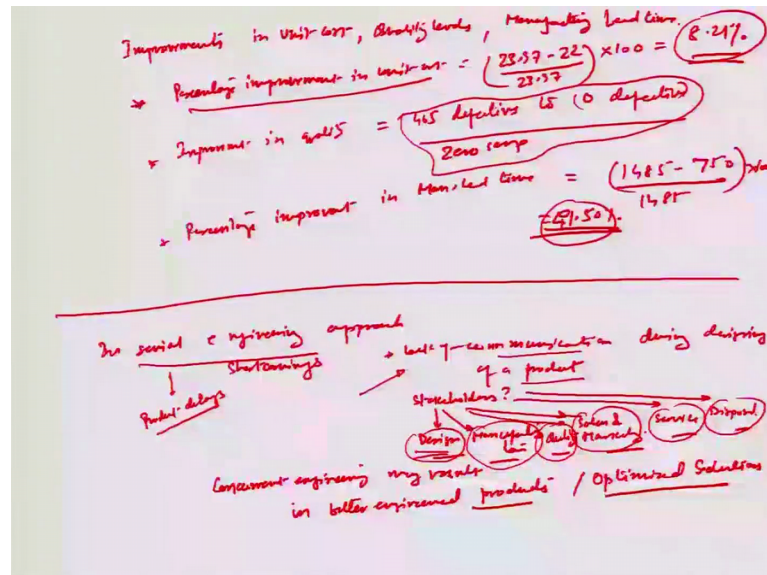 Improvements in unit cost, Quality levels, Manufacturing lead time.
* Percentage improvement in unit cost = (23.97 - 22 / 23.97) × 100 = 8.21%
* Improvement in quality = 465 defectives to (0 defectives)
Zero scrap
* Percentage improvement in Manu. lead time = (1485 - 750 / 1485) ×100
= 49.50%
In serial engineering approach
Shortcomings
Product delays
→ lack of communication during designing
of a product
Stakeholders?
Design Quality Sales & Service Disposal
Concurrent engineering may result
in better engineered products / Optimised Solutions